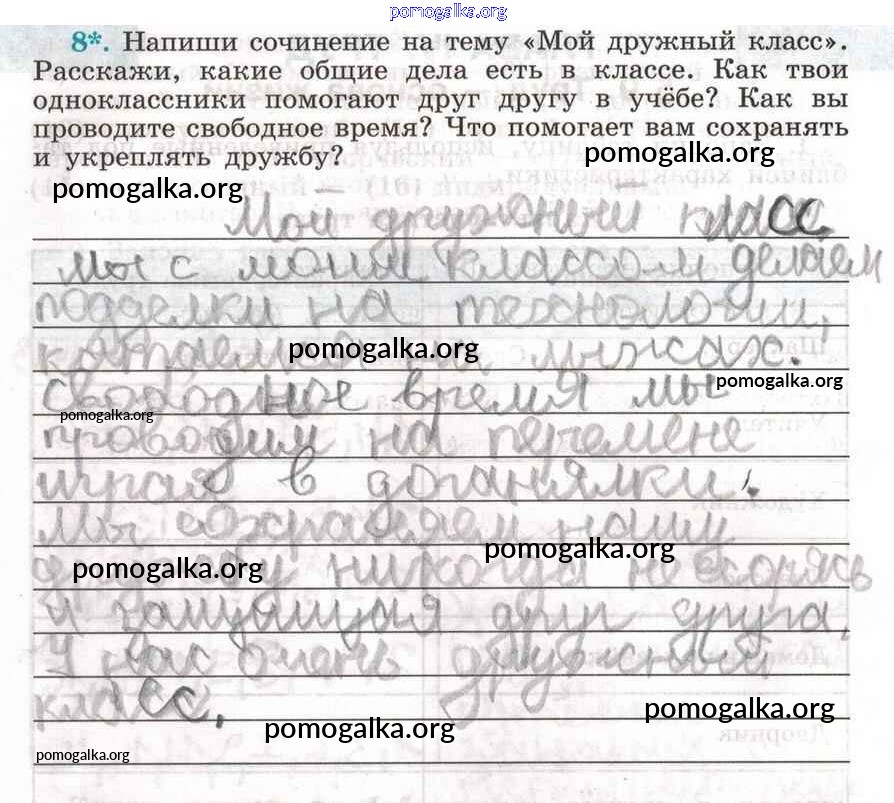 pomogalka.org
8*. Напиши сочинение на тему «Мой дружный класс».
Расскажи, какие общие дела есть в классе. Как твои
одноклассники помогают друг другу в учёбе? Как вы
проводите свободное время? Что помогает вам сохранять
и укреплять дружбу?
pomogalka.org
pomogalka.org
Мой дружный класс
Мы с моим классом делаем
подделки на технологии,
катаемся на лыжах.
pomogalka.org
pomogalka.org
Свободное время мы
pomogalka.org
проводим на перемене
играя в догонялки.
Мы сохраняем нашу
pomogalka.org
дружбу никогда не сорясь
pomogalka.org
и защищая друг друга.
У нас очень дружный
класс.
pomogalka.org
pomogalka.org
pomogalka.org